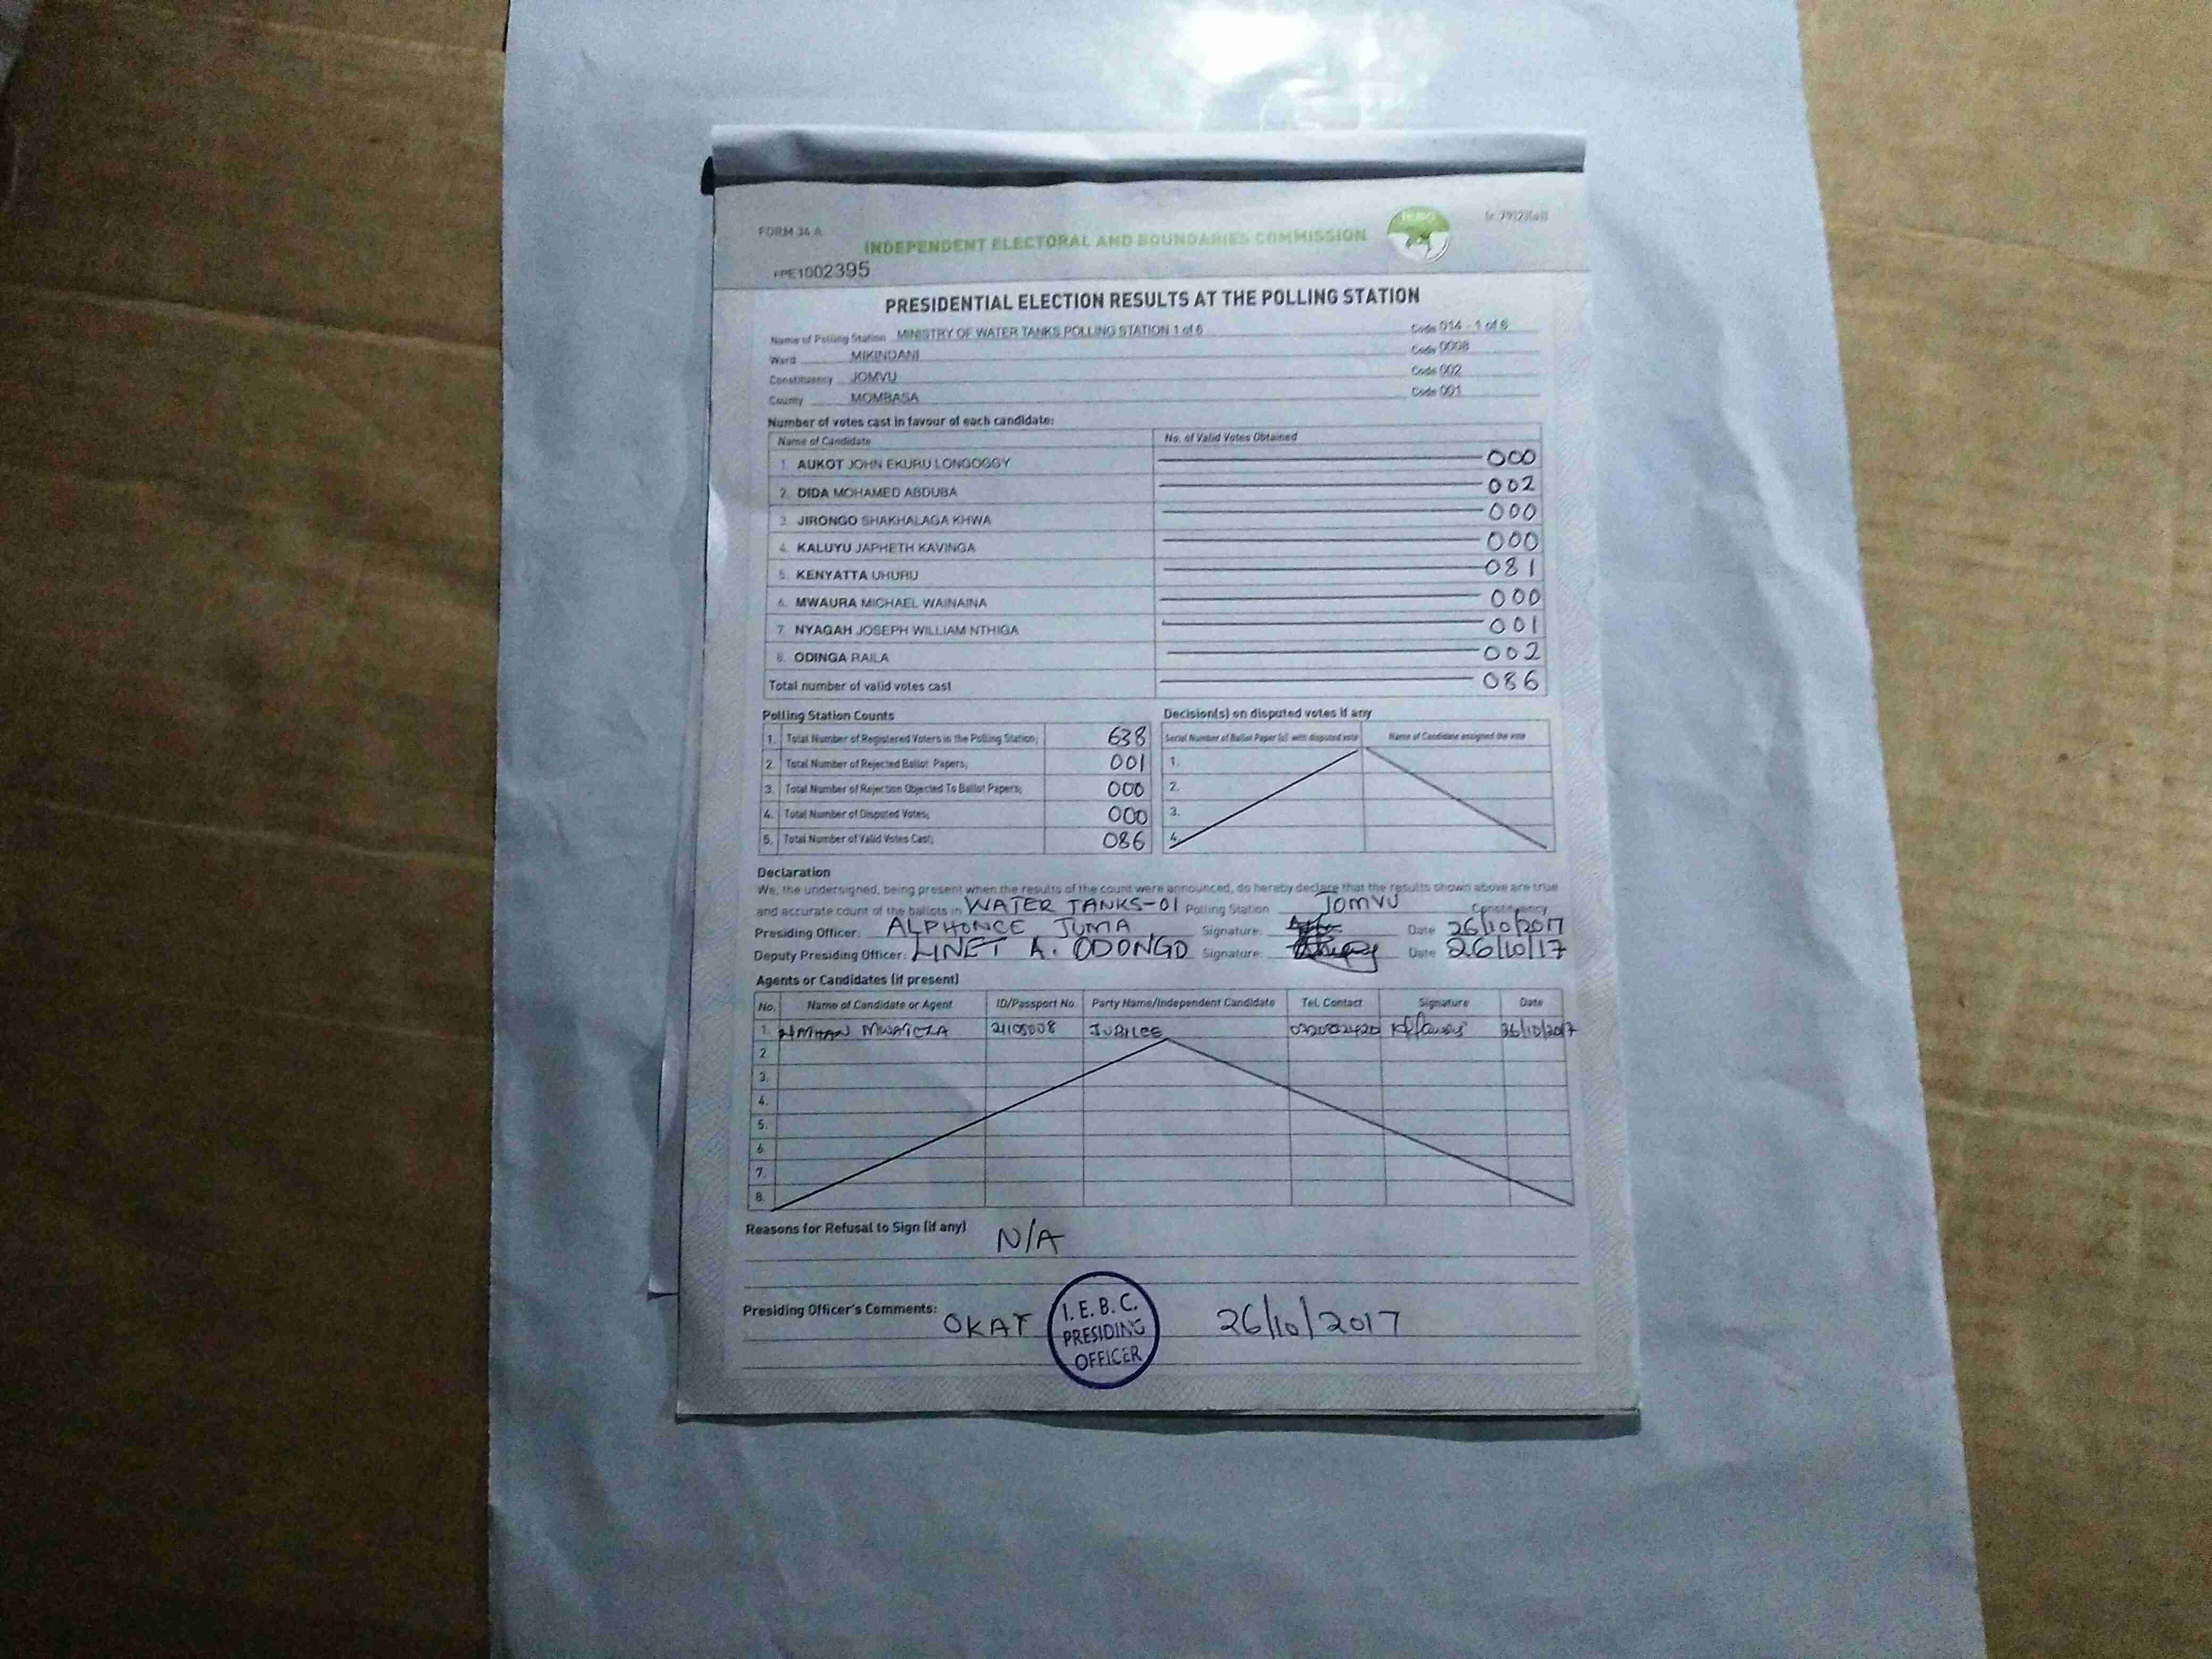 FORM 34 A
INDEPENDENT ELECTORAL AND BOUNDARIES COMMISSION
1002395
PRESIDENTIAL ELECTION RESULTS AT THE POLLING STATION
Name of Polling Station MINISTRY OF WATER TANKS POLLING STATION 1 of 6 Code 014 - 1 of 6
Ward MIKINDANI Code 0008
Constituency JOMVU Code 002
County MOMBASA Code 001
Number of votes cast in favour of each candidate:
Name of Candidate No. of Valid Votes Obtained
1. AUKOT JOHN EKURU LONGOGGY 000
2. DIDA MOHAMED ABDUBA 002
3. JIRONGO SHAKHALAGA KHWA 000
4. KALUYU JAPHETH KAVINGA 000
5. KENYATTA UHURU 081
6. MWAURA MICHAEL WAINAINA 000
7. NYAGAH JOSEPH WILLIAM NTHIGA 001
8. ODINGA RAILA 002
Total number of valid votes cast 086
Polling Station Counts
1. Total Number of Registered Voters in the Polling Station; 638
2. Total Number of Rejected Ballot Papers; 001
3. Total Number of Rejection Objected To Ballot Papers; 000
4. Total Number of Disputed Votes; 000
5. Total Number of Valid Votes Cast; 086
Decision(s) on disputed votes if any
Serial Number of Ballot Paper (s) with disputed vote Name of Candidate assigned the vote
1.
2.
3.
4.
Declaration
We, the undersigned, being present when the results of the count were announced, do hereby declare that the results shown above are true
and accurate count of the ballots in WATER TANKS-01 Polling Station JOMVU Constituency
Presiding Officer: ALPHONCE JUMA Signature: Date 26/10/2017
Deputy Presiding Officer: LINET A. ODONGO Signature: Date 26/10/17
Agents or Candidates (if present)
No. Name of Candidate or Agent ID/Passport No. Party Name/Independent Candidate Tel. Contact Signature Date
1. JUBILEE 26/10/2017
2.
3.
4.
5.
6.
7.
8.
Reasons for Refusal to Sign (if any) N/A
Presiding Officer's Comments: OKAY 26/10/2017
I. E. B. C.
PRESIDING
OFFICER